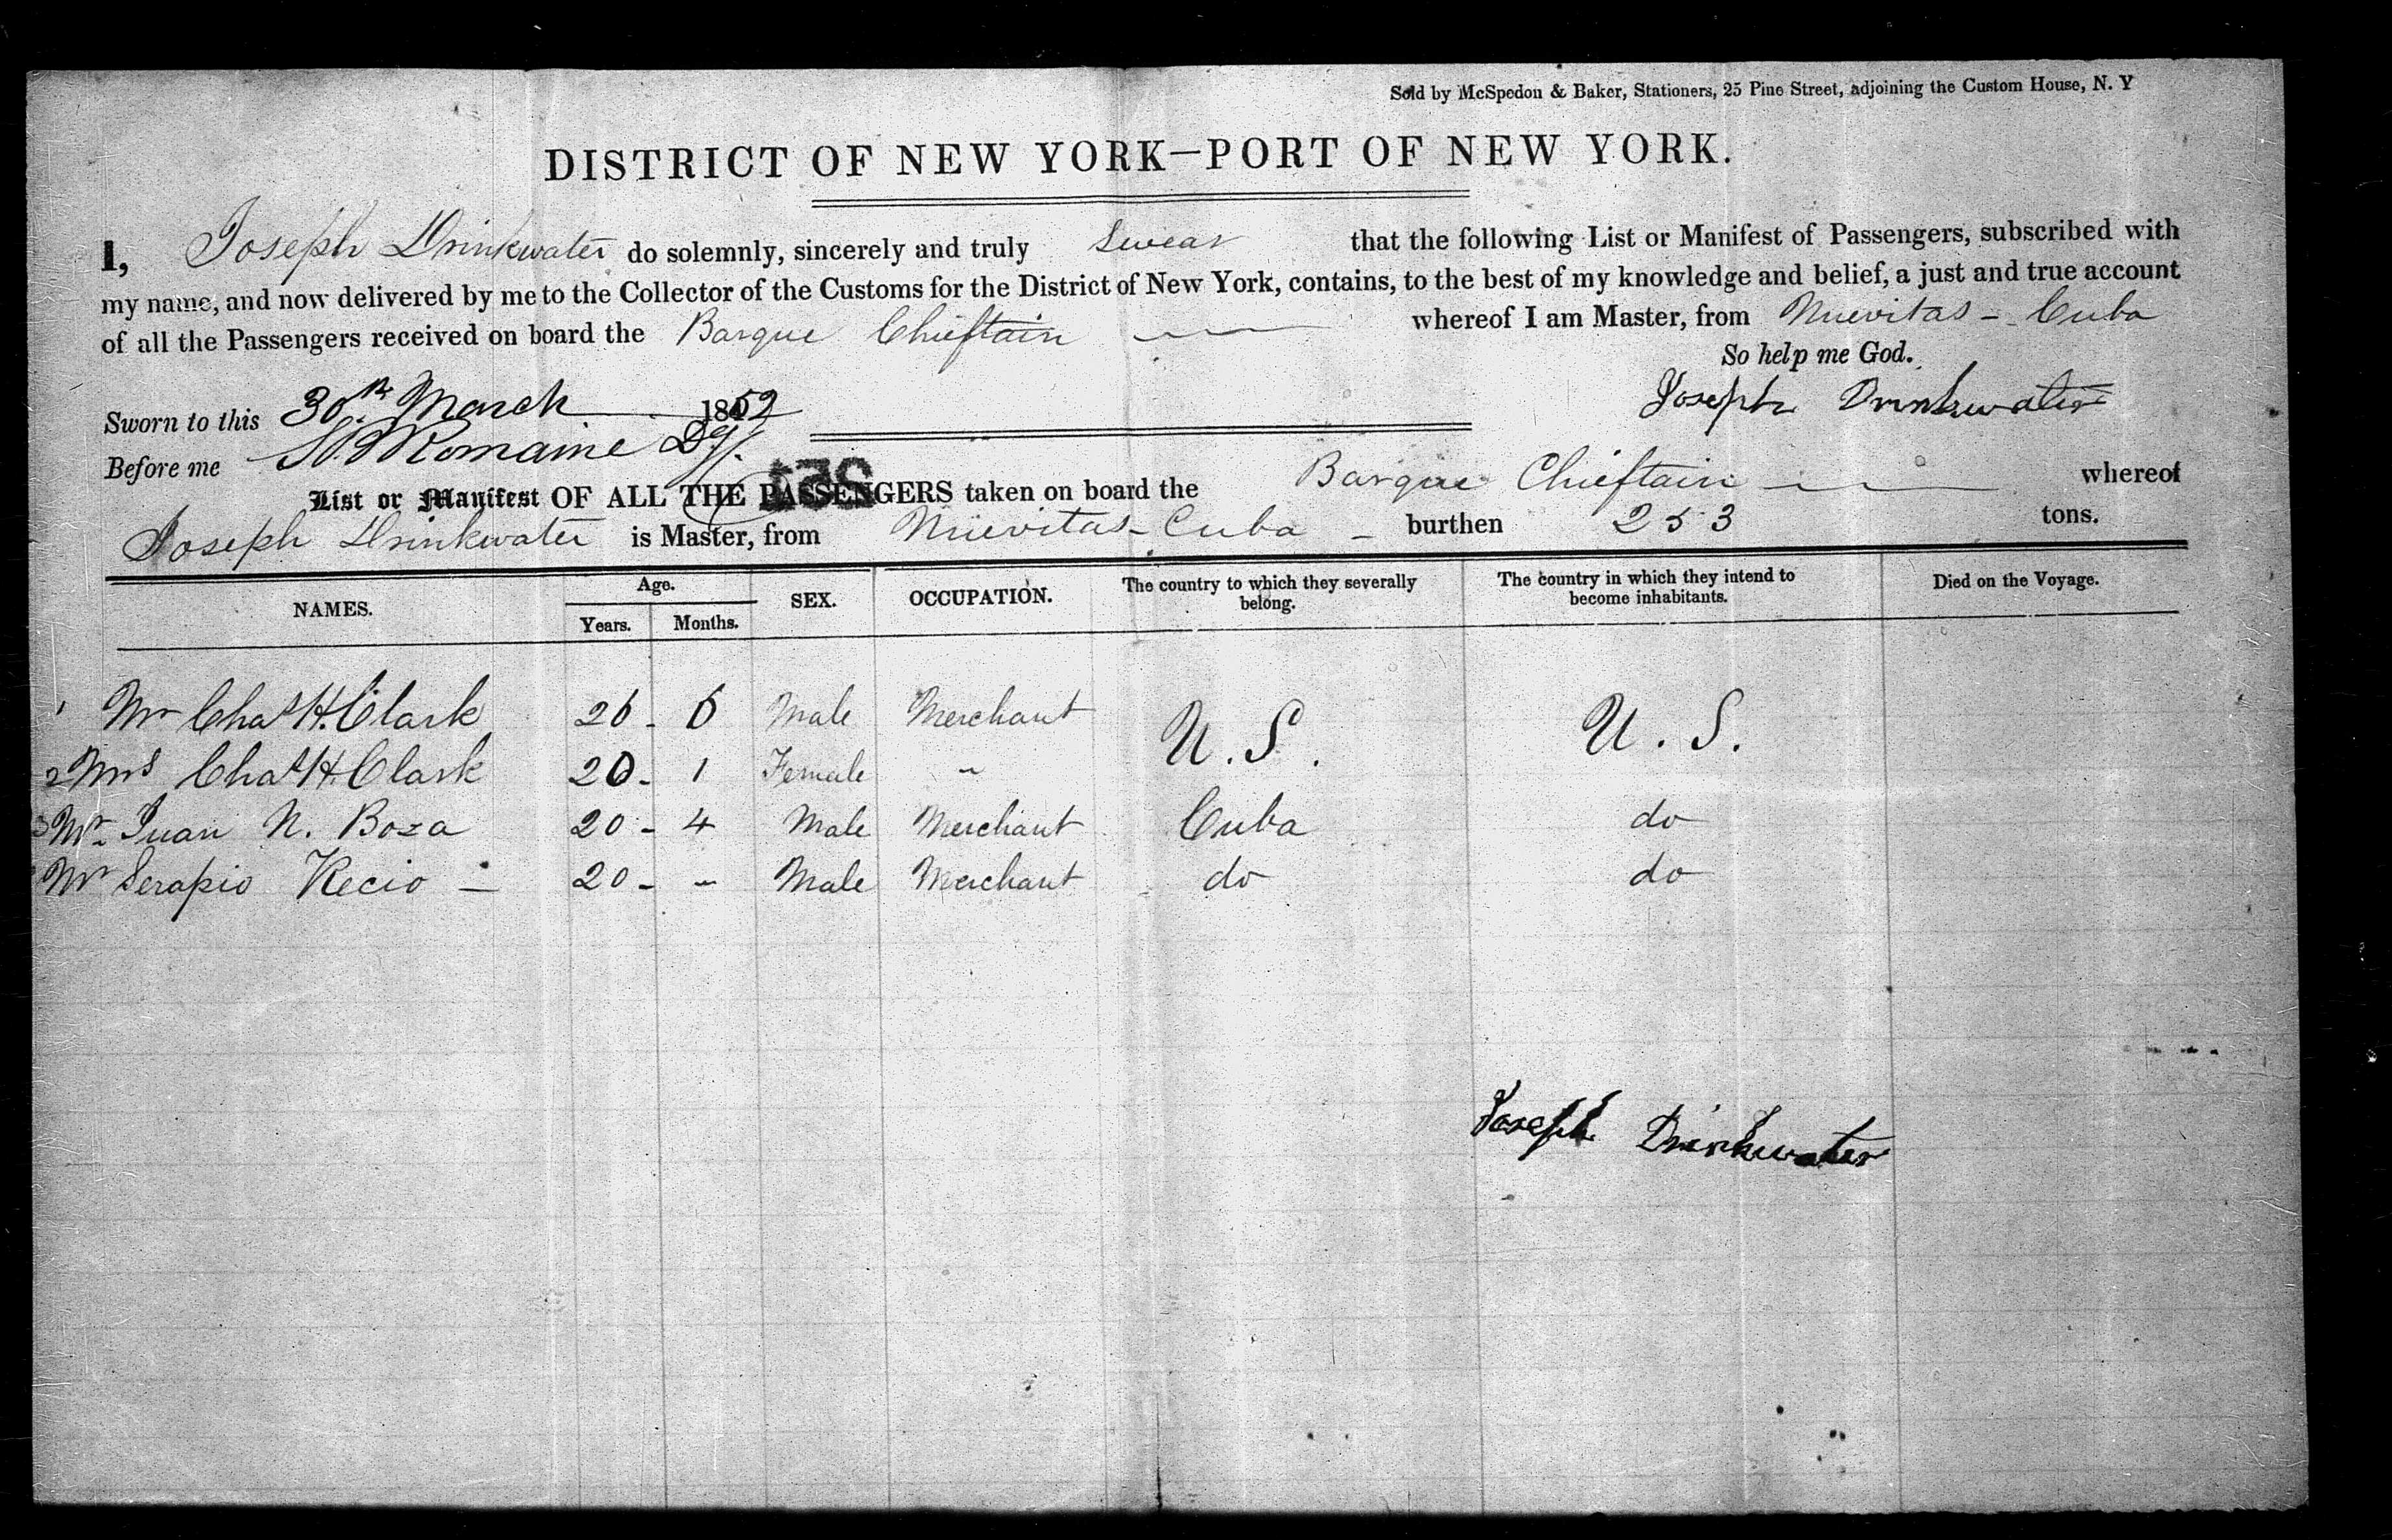 Sold by McSpedon & Baker, Stationers, 25 Pine Street, adjoining the Custom House, N. Y
DISTRICT OF NEW YORK—PORT OF NEW YORK.
I, Joseph Drinkwater do solemnly, sincerely and truly Swear that the following List or Manifest of Passengers, subscribed with
my name, and now delivered by me to the Collector of the Customs for the District of New York, contains, to the best of my knowledge and belief, a just and true account
of all the Passengers received on board the Barque Chieftain whereof I am Master, from Nuevitas - Cuba
So help me God.
Sworn to this 30th March 1852 Joseph Drinkwater
Before me Romaine Dy.
251
List or Manifest OF ALL THE PASSENGERS taken on board the Barque Chieftain whereof
Joseph Drinkwater is Master, from Nuevitas - Cuba - burthen 253 tons.
NAMES. Age. Years. Months. SEX. OCCUPATION. The country to which they severally belong. The country in which they intend to become inhabitants. Died on the Voyage.
1 Mr Chas H. Clark 26 - 6 Male Merchant U. S. U. S.
2 Mrs Chas H Clark 20 - 1 Female -
3 Mr Juan N. Boza 20 - 4 Male Merchant Cuba do
Mr Serapio Recio - 20 - - Male Merchant do do
Joseph Drinkwater